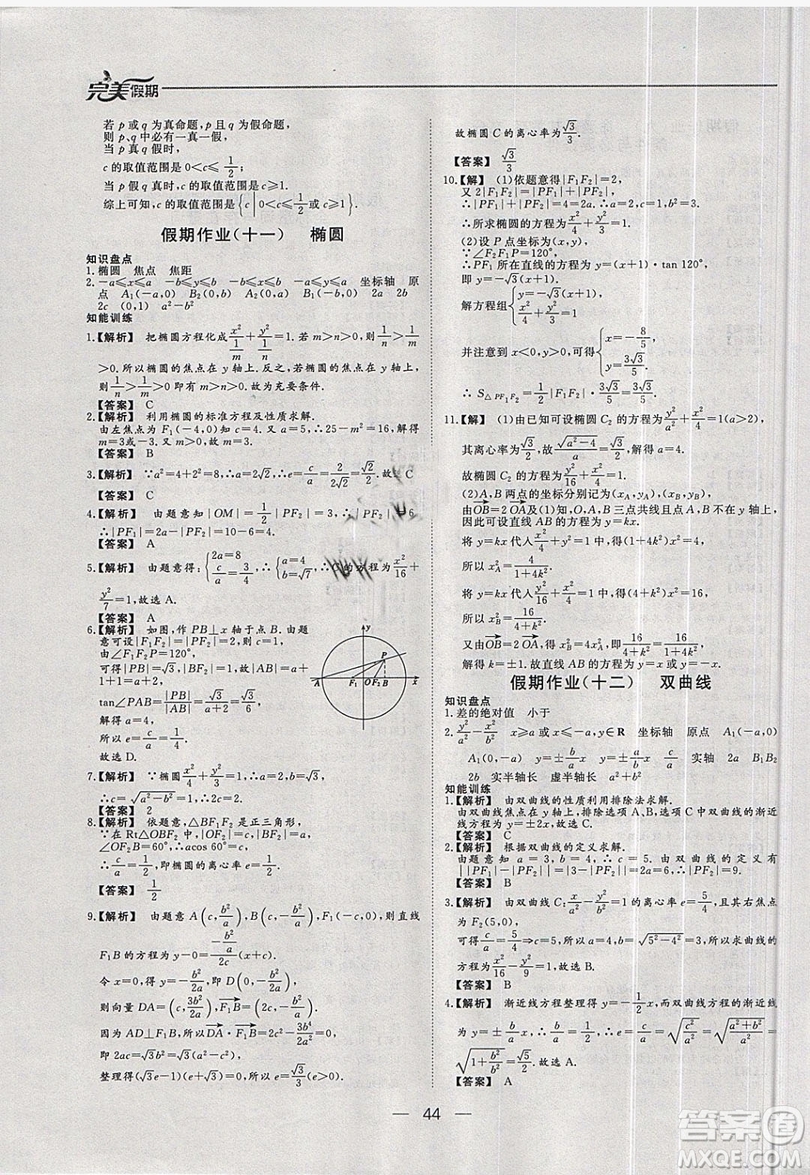 完美假期
若 p 或 q 为真命题,p 且 q 为假命题,
则 p、q 中必有一真一假,
当 p 真 q 假时,
c 的取值范围是 0<c≤1/2;
当 p 假 q 真时,
c 的取值范围是 c≥1.
综上可知,c 的取值范围是{c|0<c≤1/2或c≥1}.
假期作业(十一) 椭圆
知识盘点
1.椭圆 焦点 焦距
2.-a≤x≤a -b≤y≤b -b≤x≤b -a≤y≤a 坐标轴 原
点 A₁(-a,0) B₁(0,-b) A₁(0,-a) B₁(-b,0) 2a 2b
2c (0,1) a²-b²
知能训练
1.【解析】 把椭圆方程化成x²/(1/m)+y²/(1/n)=1.若 m>n>0,则1/n>1/m
>0.所以椭圆的焦点在 y 轴上.反之,若椭圆的焦点在 y 轴上,
则1/n>1/m>0 即有 m>n>0.故为充要条件.
【答案】 C
2.【解析】 利用椭圆的标准方程及性质求解.
由左焦点为 F₁(-4,0)知 c=4.又 a=5,∴25-m²=16,解得
m=3或-3.又 m>0,故 m=3.
【答案】 B
3.【解析】 ∵a²=4+2²=8,∴a=2√2,∴e=c/a=2/(2√2)=√2/2.故选 C
【答案】 C
4.【解析】 由题意知|OM|=1/2|PF₂|=3,∴|PF₂|=6
∴|PF₁|=2a-|PF₂|=10-6=4.
【答案】 A
5.【解析】 由题意得:{2a=8 c/a=3/4,∴{a=4 b=√7,∴C的方程为x²/16+
y²/7=1,故选 A.
【答案】 A
6.【解析】 如图,作 PB⊥x 轴于点 B.由题
意可设|F₁F₂|=|PF₂|=2,则 c=1,
由∠F₁F₂P=120°,
可得|PB|=√3,|BF₂|=1,
故|AB|=a+1+1=a+2,
tan∠PAB=|PB|/|AB|=√3/(a+2)=√3/6,
解得 a=4,
所以 e=c/a=1/4.
故选 D.
y
P
A
F₁
O
F₂
B
x
7.【解析】 ∵椭圆方程为x²/4+y²/3=1,
∴c=√(a²-b²)=√(4-3)=1,∴2c=2.
【答案】 2
8.【解析】 依题意,△BF₁F₂ 是正三角形,
∵在 Rt△OBF₂ 中,|OF₂|=c,|BF₂|=a,
∠OF₂B=60°,∴acos 60°=c,
∴c/a=1/2,即椭圆的离心率 e=1/2.
【答案】 1/2
9.【解析】 由题意知 A(c,b²/a),B(c,-b²/a),F₁(-c,0),则直线
F₁B 的方程为 y-0=(-b²/a)/2c(x+c)
令 x=0,得 y=-b²/2a,即 D(0,-b²/2a),
则向量 DA=(c,3b²/2a),F₁B=(2c,-b²/a),
因为 AD⊥F₁B,所以DA·F₁B=2c²-3b⁴/2a²=0,
即 2ac=√3b²=√3(a²-c²),
整理得(√3e-1)(e+√3)=0,所以 e=√3/3(e>0).
故椭圆 C 的离心率为√3/3.
【答案】 √3/3
10.【解】 (1)依题意得|F₁F₂|=2,
又 2|F₁F₂|=|PF₁|+|PF₂|,
∴|PF₁|+|PF₂|=4=2a,
∴a=2,∵c=1,∴b²=3.
∴所求椭圆的方程为x²/4+y²/3=1.
(2)设 P 点坐标为(x,y),
∵∠F₂F₁P=120°,
∴PF₁ 所在直线的方程为 y=(x+1)·tan 120°,
即 y=-√3(x+1).
解方程组{y=-√3(x+1), x²/4+y²/3=1,
并注意到 x<0,y>0,可得{x=-8/5, y=3√3/5.
∴S△PF₁F₂=1/2|F₁F₂|·3√3/5=3√3/5.
11.【解】 (1)由已知可设椭圆 C₂ 的方程为y²/a²+x²/4=1(a>2),
其离心率为√3/2,故√(a²-4)/a=√3/2,解得 a=4,
故椭圆 C₂ 的方程为y²/16+x²/4=1.
(2)A,B 两点的坐标分别记为(xA,yA),(xB,yB),
由OB=2 OA及(1)知,O,A,B 三点共线且点 A,B 不在 y 轴上,
因此可设直线 AB 的方程为 y=kx.
将 y=kx 代入x²/4+y²=1 中,得(1+4k²)x²=4,
所以 x²A=4/(1+4k²).
将 y=kx 代入y²/16+x²/4=1 中,得(4+k²)x²=16,
所以 x²B=16/(4+k²).
又由OB=2 OA,得 x²B=4x²A,即16/(4+k²)=16/(1+4k²),
解得 k=±1.故直线 AB 的方程为 y=x 或 y=-x.
假期作业(十二) 双曲线
知识盘点
1.差的绝对值 小于
2.y²/a²-x²/b²=1 x≥a 或 x≤-a,y∈R 坐标轴 原点 A₁(-a,0)
A₁(0,-a) y=±b/a x y=±a/b x c/a 实轴 2a B₁B₂
2b 实半轴长 虚半轴长 a²+b²
知能训练
1.【解析】 由双曲线的性质利用排除法求解.
由双曲线焦点在 y 轴上,排除选项 A、B;选项 C 中双曲线的渐近
线方程为 y=±2x,故选 C.
【答案】 C
2.【解析】 根据双曲线的定义求解.
由题意知 a=3,b=4,∴c=5.由双曲线的定义有
||PF₁|-|PF₂||=|3-|PF₂||=2a=6.∴|PF₂|=9.
【答案】 B
3.【解析】 由双曲线 C:x²/a²-y²/b²=1 的离心率 e=5/4,且其右焦点
为 F₂(5,0),可得c/a=5/4,c=5,所以 a=4,b=√(5²-4²)=3,故所
求双曲线方程为x²/16-y²/9=1.故选 B.
【答案】 B
4.【解析】 渐近线方程整理得 y=-1/2x,而双曲线方程的渐近线
为 y=±b/a x,∴b/a=1/2,∴e=c/a=√(c²/a²)=√((a²+b²)/a²)=
√(1+b²/a²)=√5/2.故选 A.
【答案】 A
44
答案圈
MXQE.COM